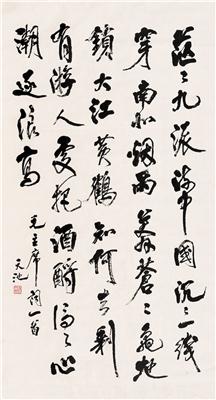 茫茫九派流中國沉沉一线
穿南北烟雨莽蒼蒼龜蛇
鎖大江黄鶴知何去剩
有游人處把酒酹滔滔心
潮逐浪高
毛主席词一首
天池